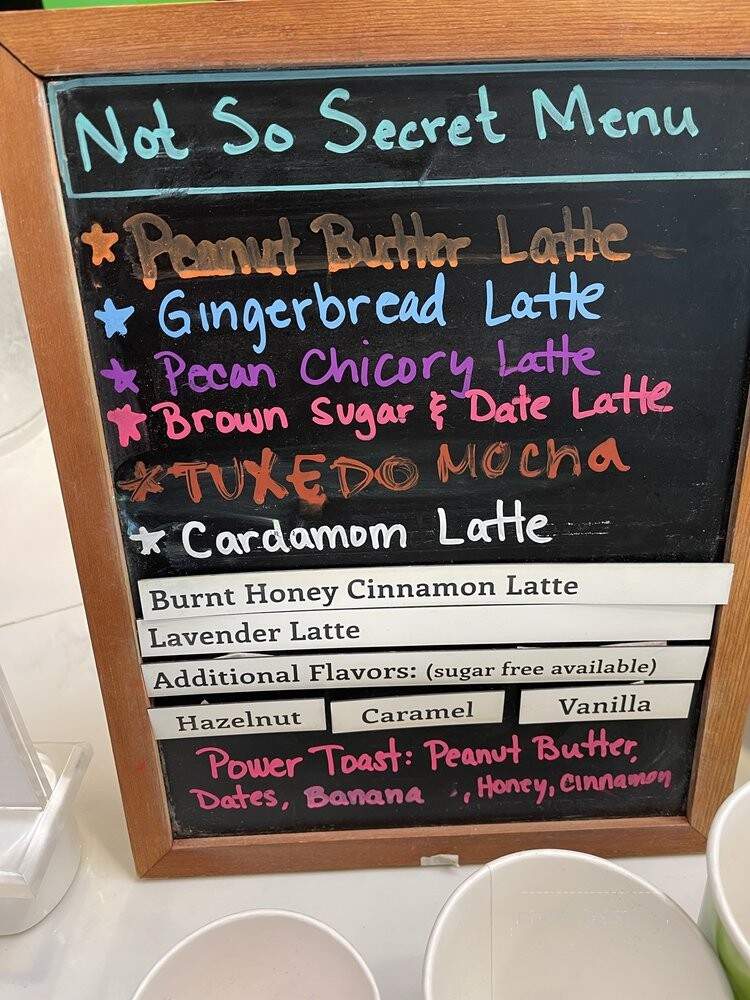 Not So Secret Menu
Peanut Butter Latte
Gingerbread Latte
Pecan Chicory Latte
Brown Sugar & Date Latte
TUXEDO Mocha
Cardamom Latte
Burnt Honey Cinnamon Latte
Lavender Latte
Additional Flavors: (sugar free available)
Hazelnut Caramel Vanilla
Power Toast: Peanut Butter,
Dates, Banana , Honey, Cinnamon